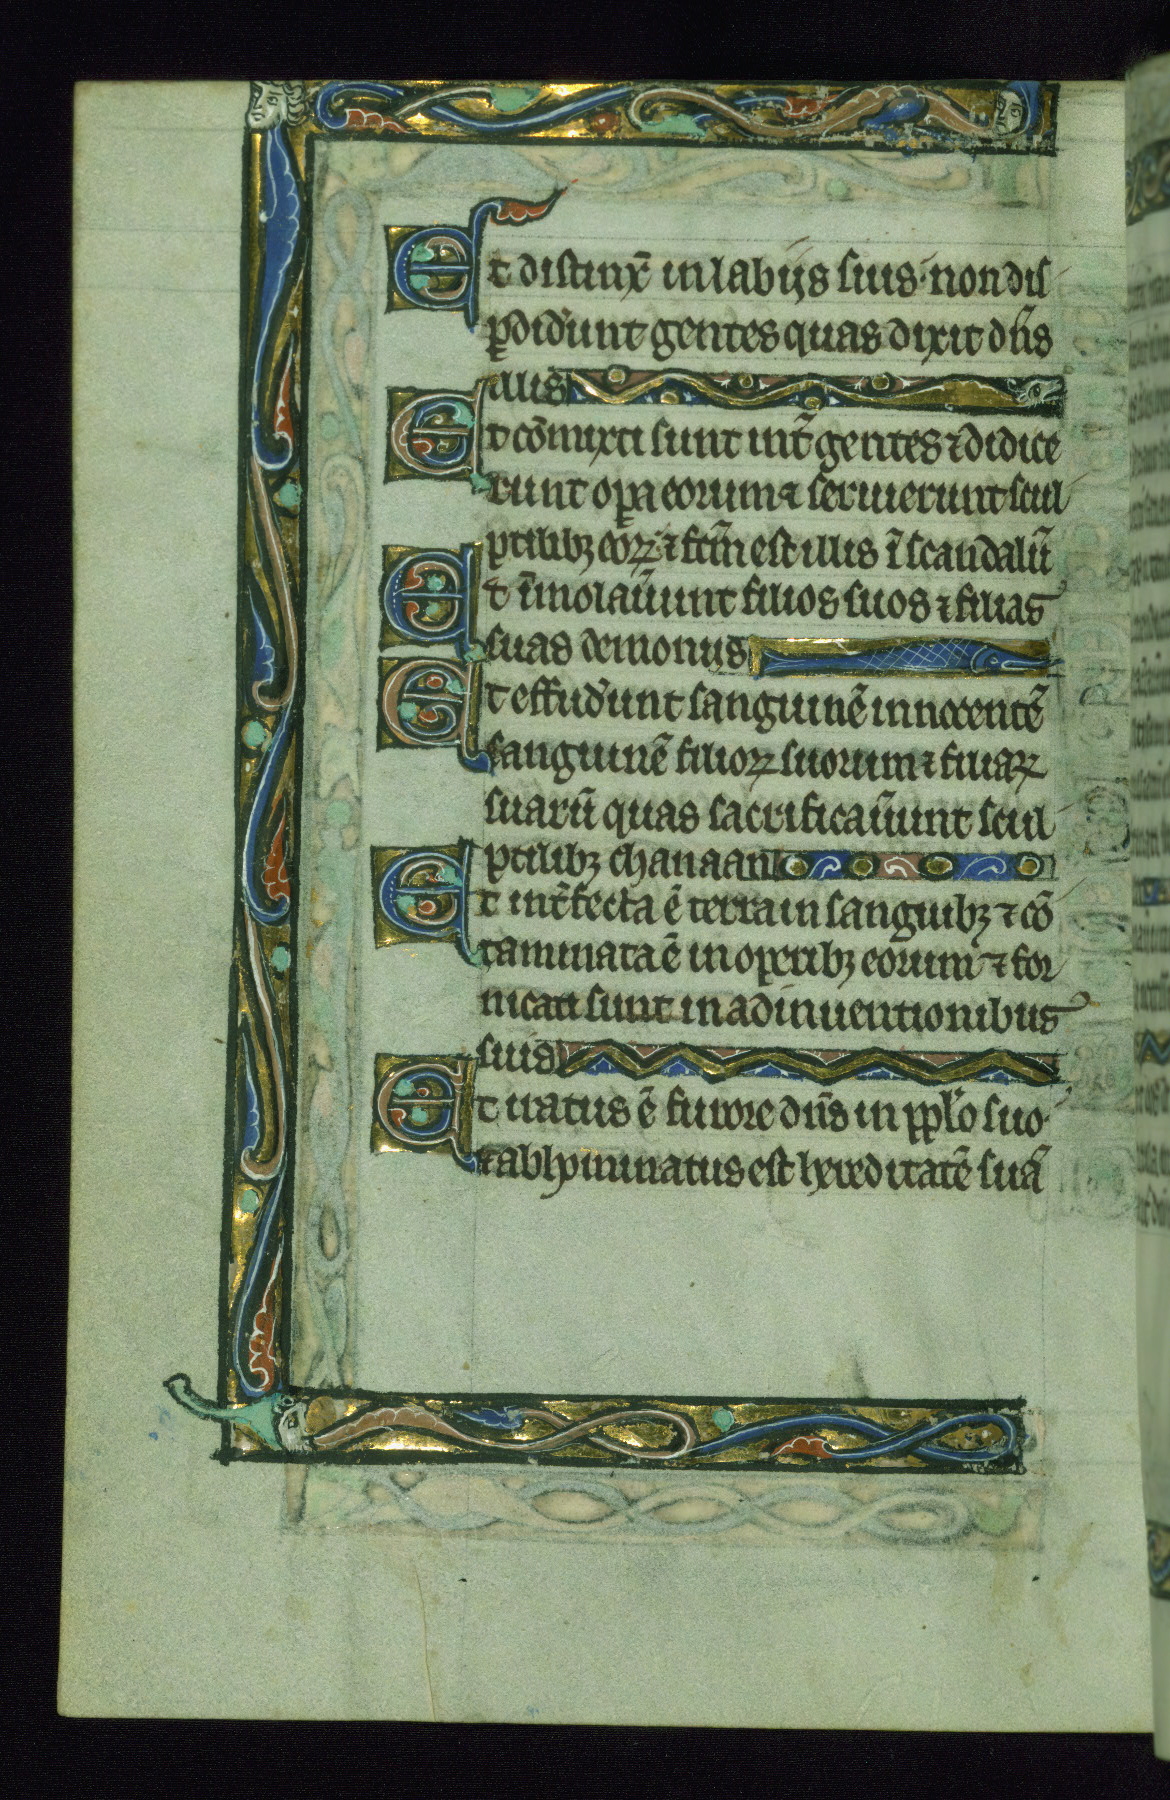 Et distinx̄ in labijs suis· non dis
ꝑdid'unt gentes quas dixit dn̄s
illis
Et cōmixti sunt int̄ gentes ⁊ didice
runt oꝑa eorum ⁊ seruierunt scul
ptilibꝫ eoꝝ ⁊ fc̄m est illis ī scandalū
Et īmolau̾unt filios suos ⁊ filias
suas demoniis
Et effud'unt sanguinē innocentē
sanguinē filioꝝ suorum ⁊ filiaꝝ
suarū quas sacrificau̾unt scul
ptilibꝫ chanaan
Et int̄fecta ē terra in sanguibꝫ ⁊ cō
taminata ē in operibꝫ eorum ⁊ for
nicati sunt in adinuentionibus
suis
Et iratus ē furore dn̄s in pplo̅ suo·
⁊ abhominatus est hereditatē suā